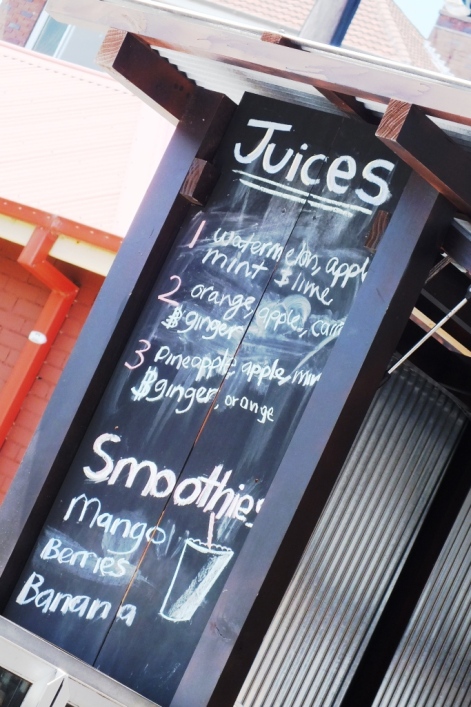 Juices
1 watermelon, appl
mint & lime
2 orange, apple, carr
& ginger
3 Pineapple, apple, min
& ginger, orange
Smoothies
Mango
Berries
Banana